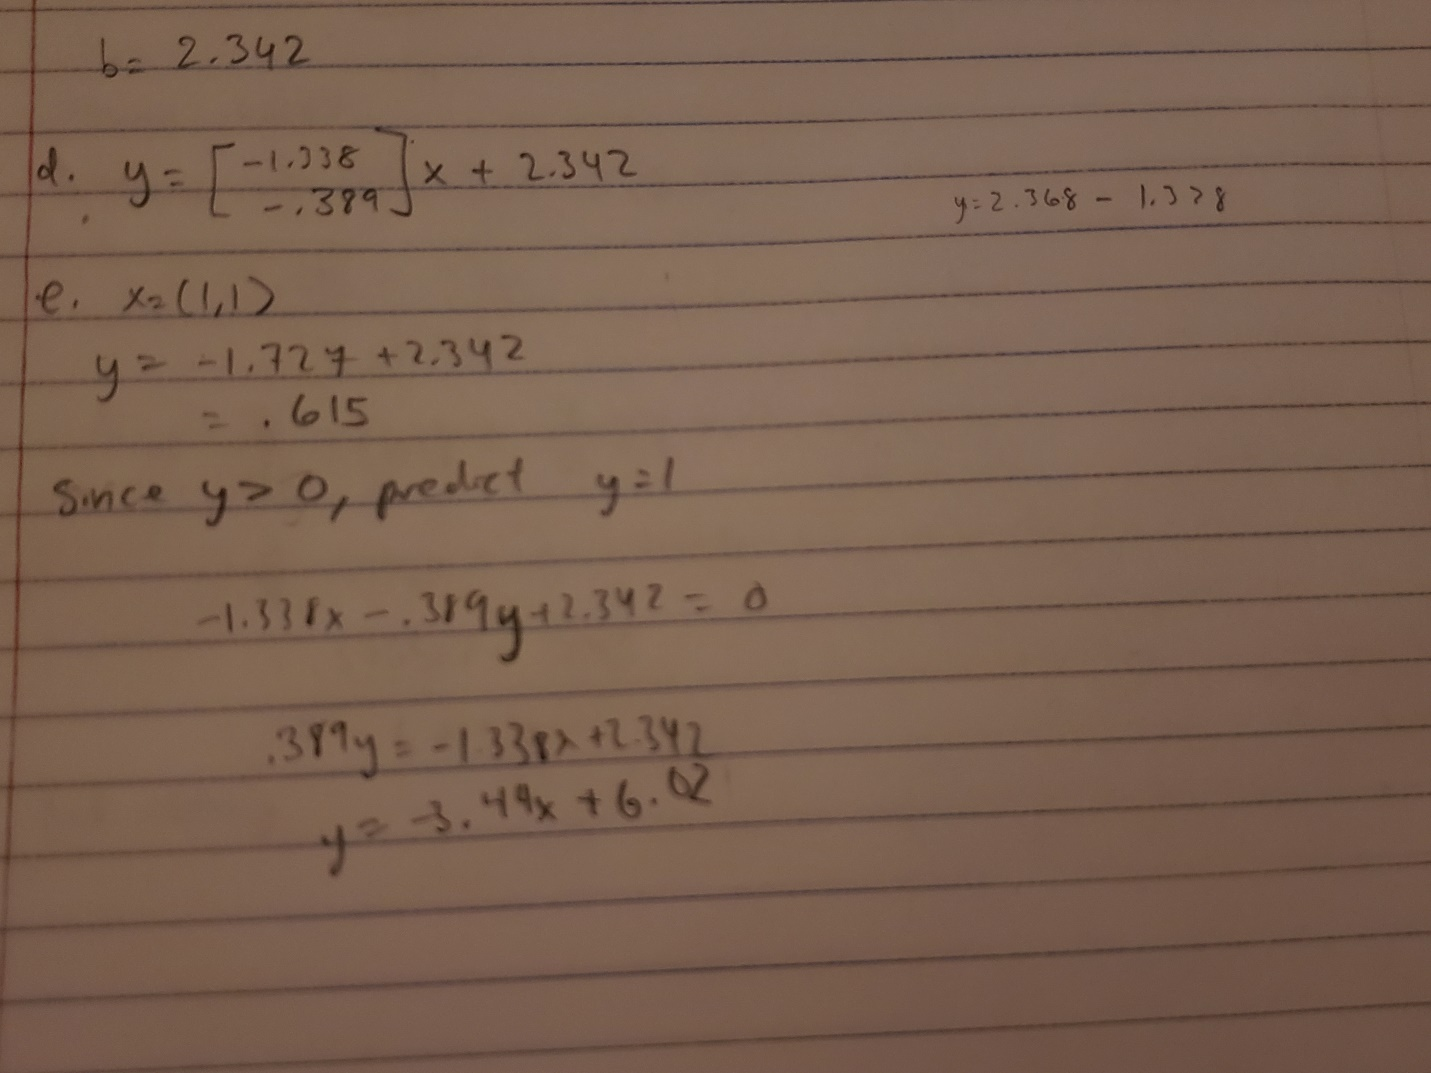 b= 2.342
d. y= [-1.338
-.389] x + 2.342
y=2.368 - 1.328
e. x=(1,1)
y= -1.727 +2.342
= .615
Since y>0, predict y=1
-1.338x -.389y+2.342 = 0
.389y = -1.338x+2.342
y= -3.44x + 6.02